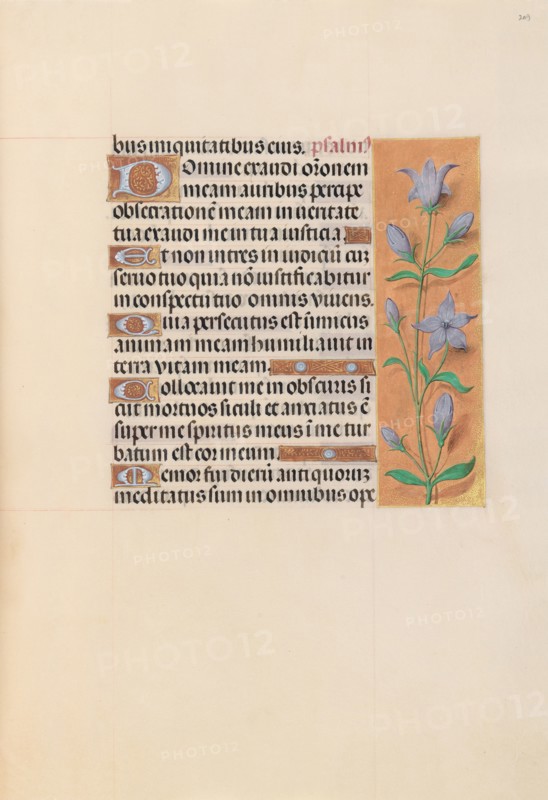 209
bus iniquitatibus eius. psalm9
Domine exaudi or̄onem
meam auribus percipe
obsecrationē meam in ueritate
tua exaudi me in tua iusticia.
Et non intres in iudiciū cū
seruo tuo quia nō iustificabitur
in conspectu tuo omnis viuens.
Quia persecutus est inimicus
animam meam humiliauit in
terra vitam meam.
Collocauit me in obscuris si
cut mortuos siculi et anxiatus ē
super me spiritus meus ī me tur
batum est cor meum.
Memor fui dierū antiquorum
meditatus sum in omnibus ope
PHOTO12